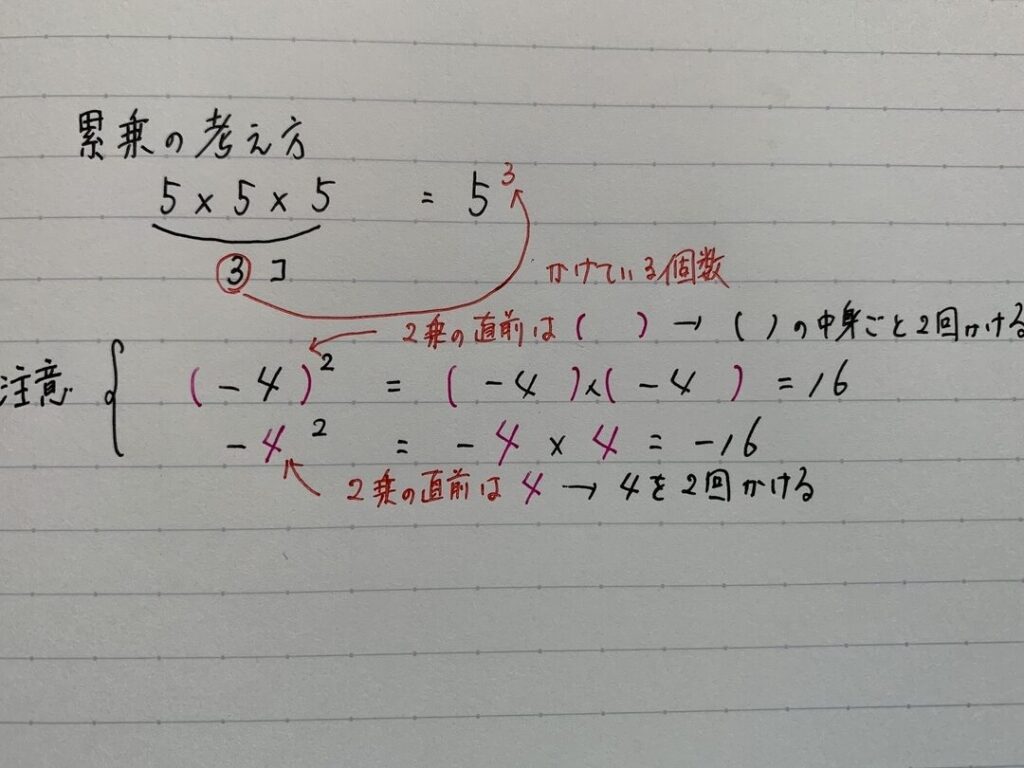 累乗の考え方
5 × 5 × 5 = 5³
3 コ
かけている個数
2乗の直前は ( ) → ( ) の中身ごと2回かける
注意 { (-4)² = (-4)×(-4) = 16
-4² = -4 × 4 = -16
2乗の直前は 4 → 4を2回かける